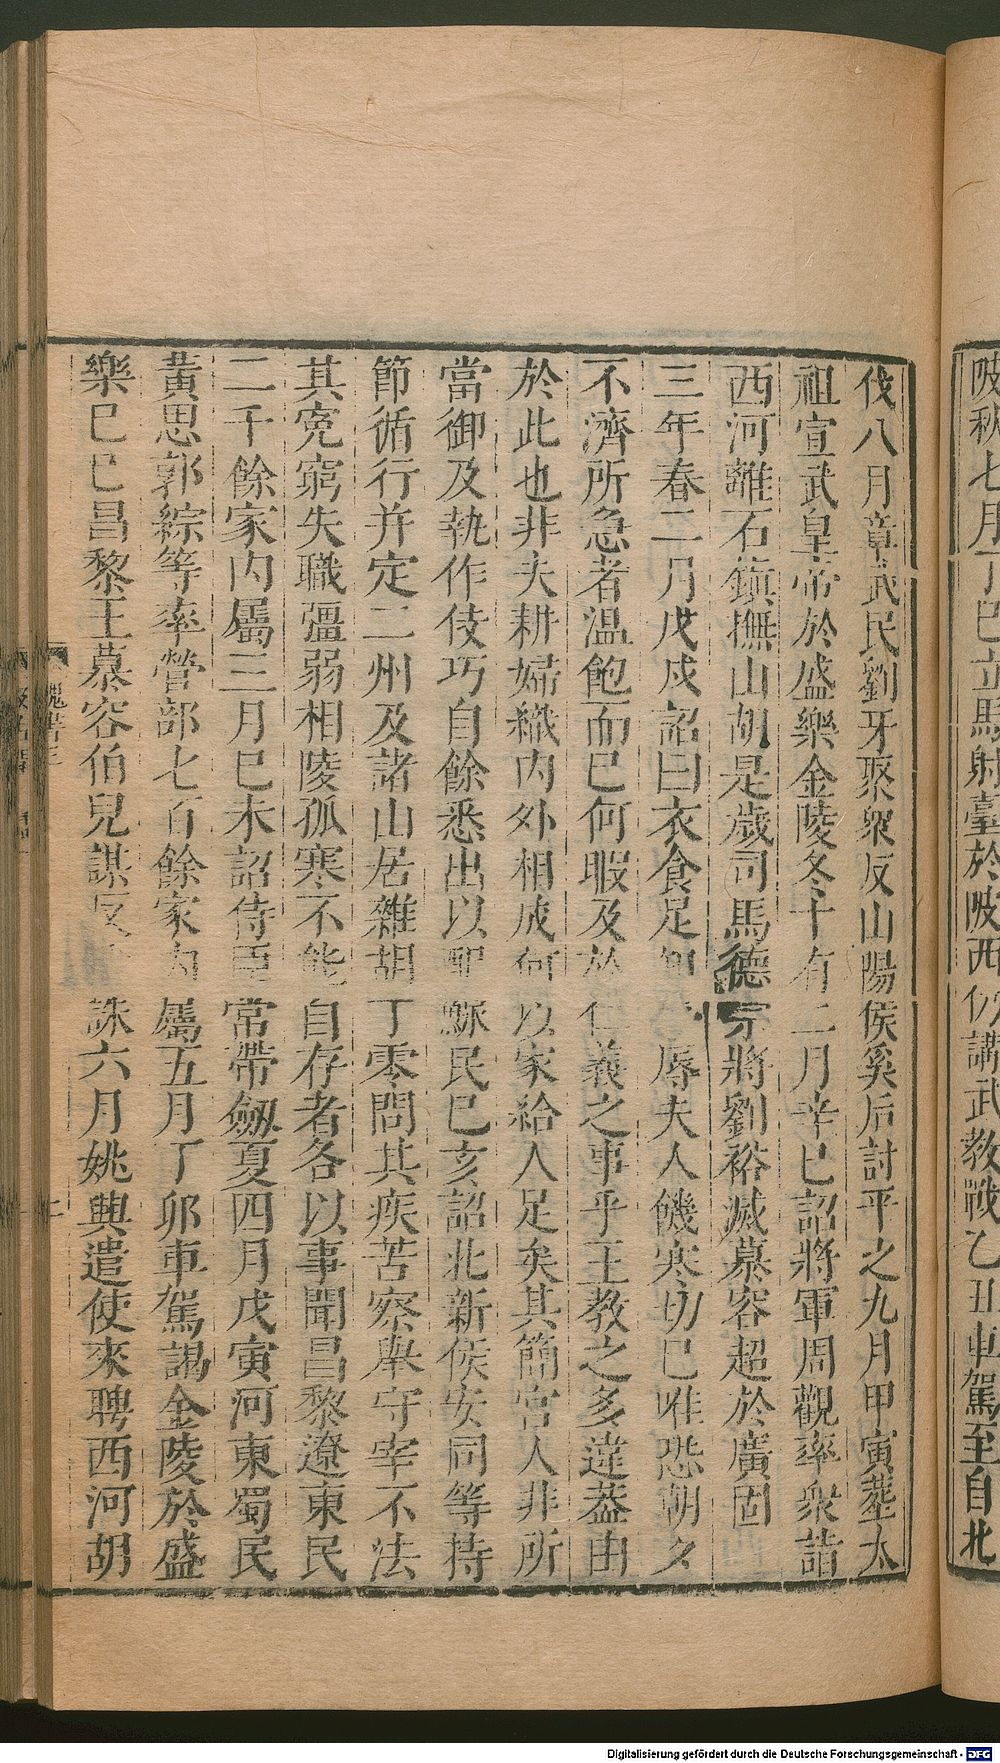 陂秋七月丁巳立馬射臺於陂西仍講武教戰乙丑車駕至自北
伐八月章武民劉牙聚衆反山陽侯奚后討平之九月甲寅葬太
祖宣武皇帝於盛樂金陵冬十有二月辛巳詔將軍周觀率衆詣
西河離石鎮撫山胡是歲司馬德宗將劉裕滅慕容超於廣固
三年春二月戊戌詔曰衣食足知 辱夫人饑寒切巳唯恐朝夕
不濟所急者溫飽而巳何暇及於仁義之事乎王教之多違葢由
於此也非夫耕婦織内外相成何以家給人足矣其簡宮人非所
當御及執作伎巧自餘悉出以配鰥民巳亥詔北新侯安同等持
節循行并定二州及諸山居雜胡丁零問其疾苦察舉守宰不法
其寃窮失職彊弱相陵孤寒不能自存者各以事聞昌黎遼東民
二千餘家内屬三月巳未詔侍臣常帶劔夏四月戊寅河東蜀民
黃思郭綜等率營部七百餘家内屬五月丁卯車駕謁金陵於盛
樂巳巳昌黎王慕容伯兒謀反 誅六月姚興遣使來聘西河胡
魏書三
Digitalisierung gefördert durch die Deutsche Forschungsgemeinschaft - DFG